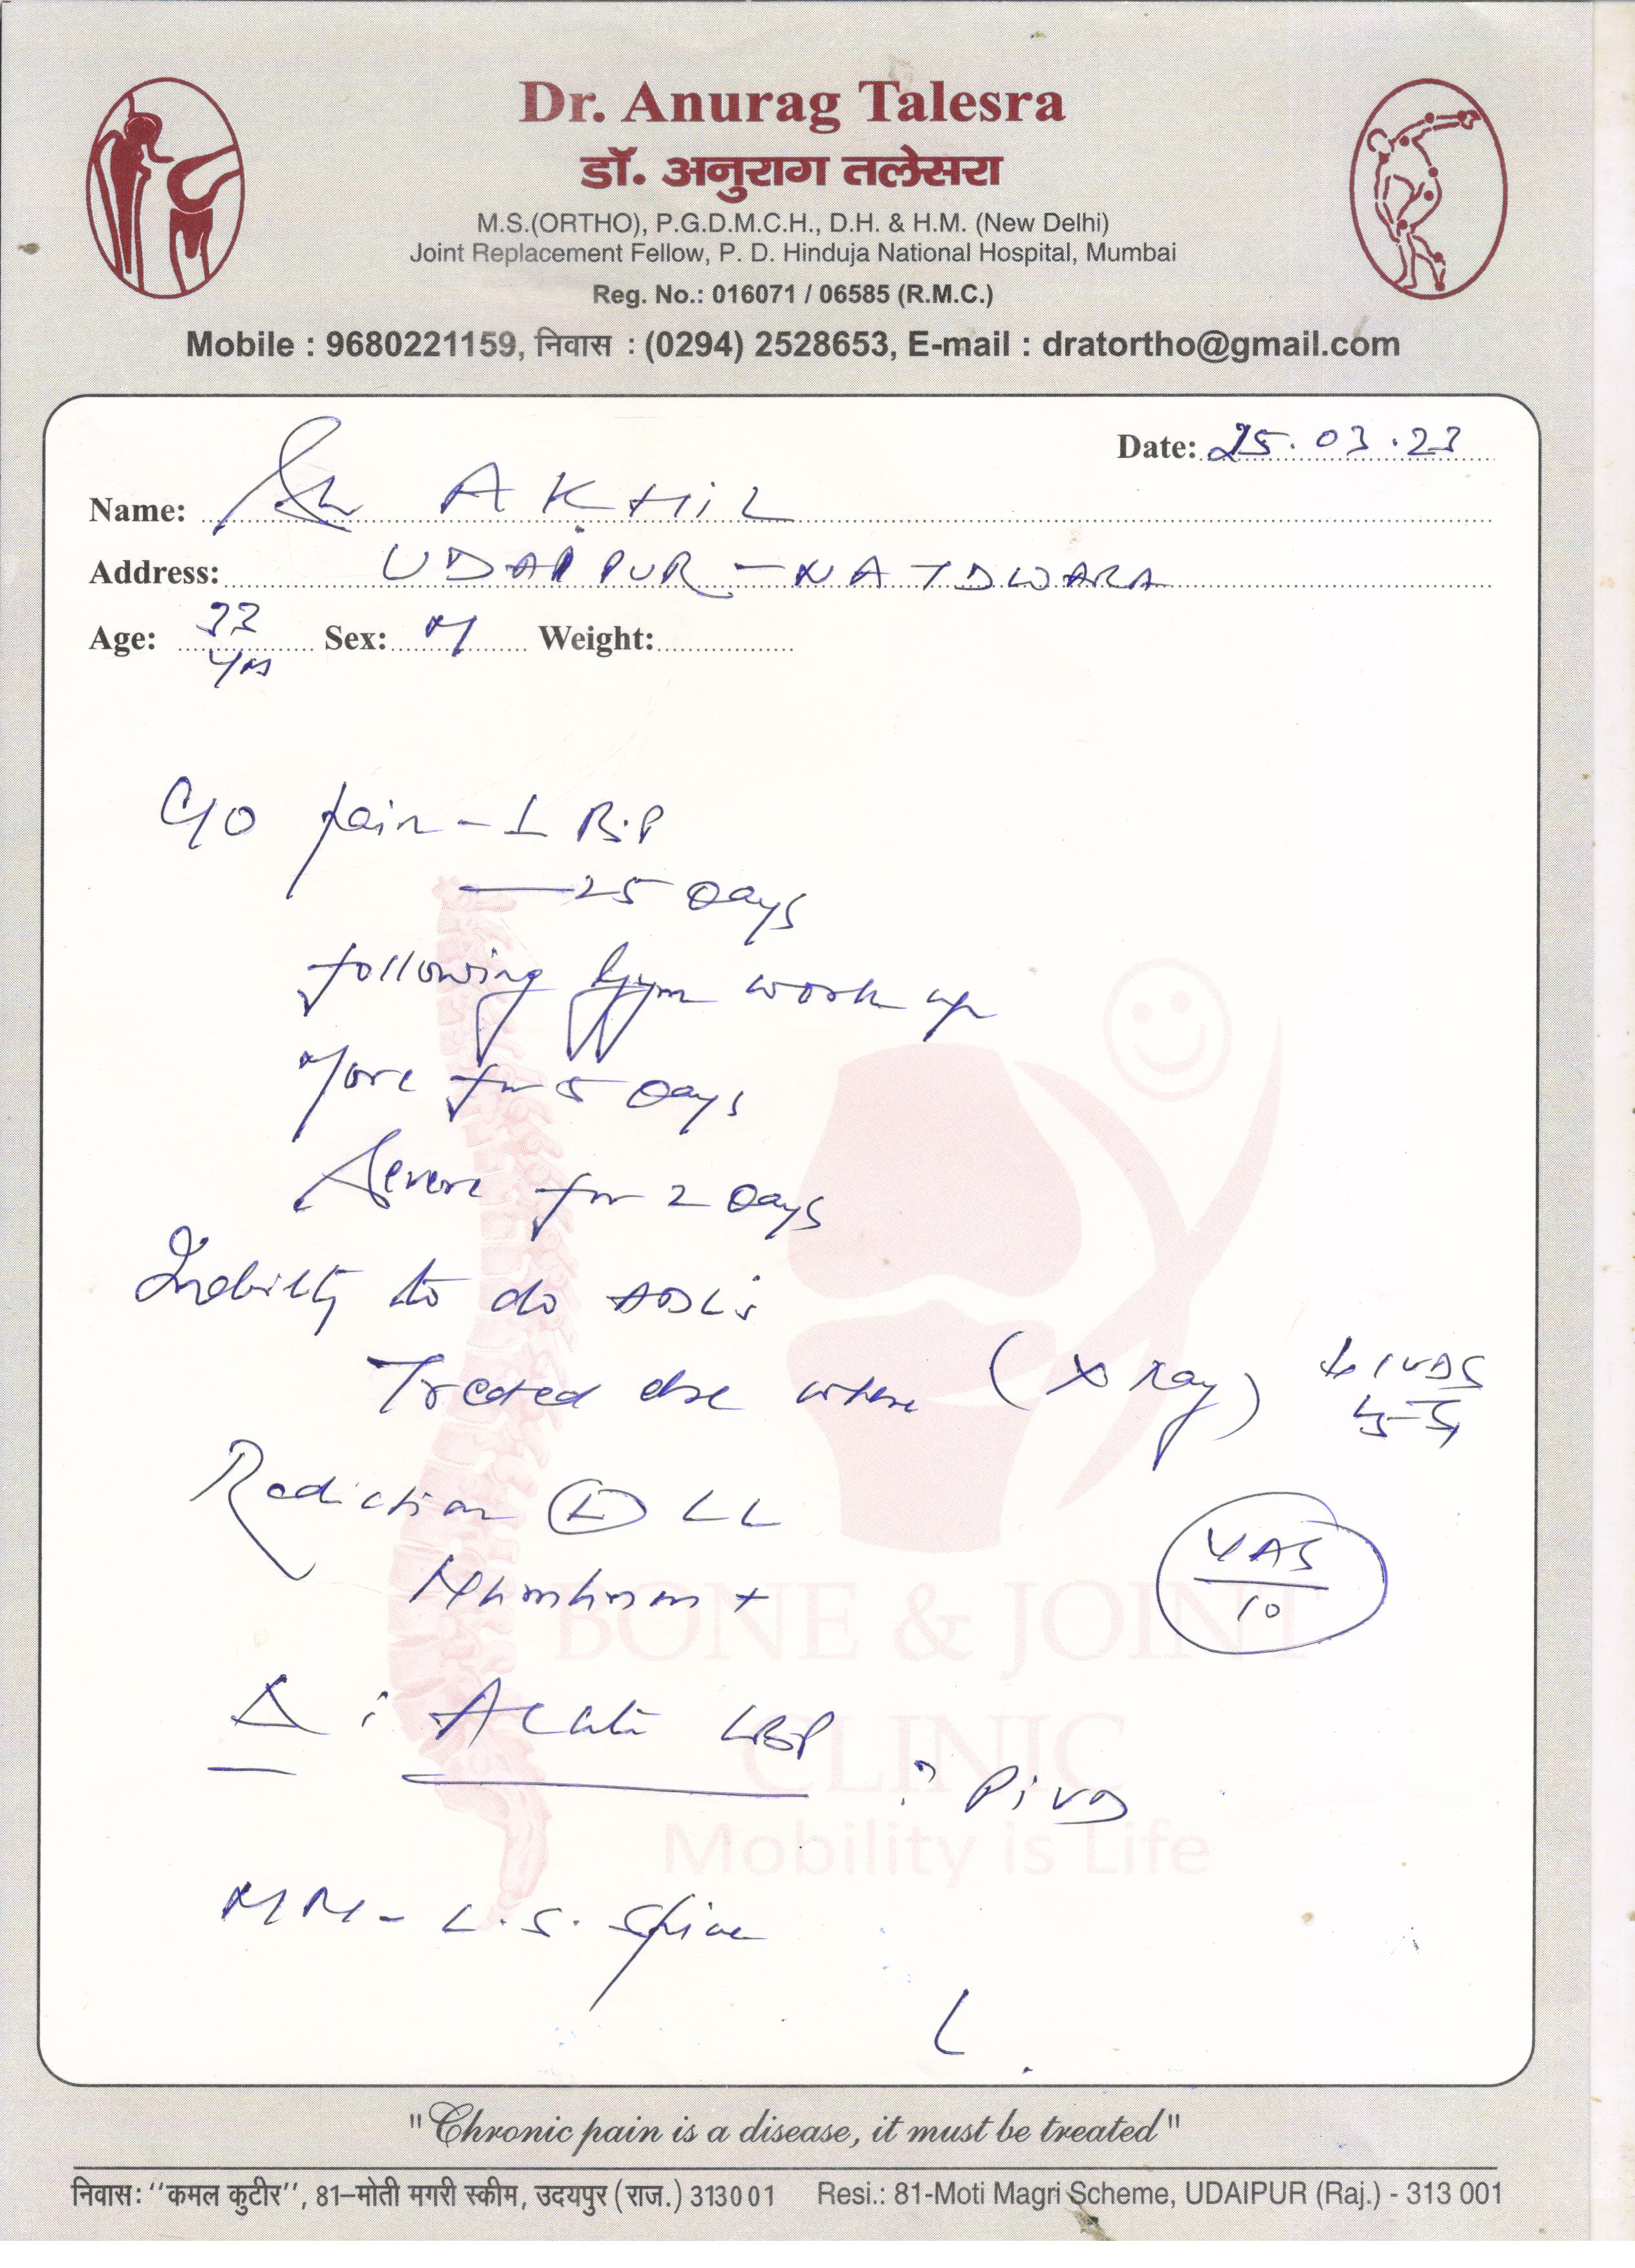 Dr. Anurag Talesra
डॉ. अनुराग तलेसरा
M.S.(ORTHO), P.G.D.M.C.H., D.H. & H.M. (New Delhi)
Joint Replacement Fellow, P. D. Hinduja National Hospital, Mumbai
Reg. No.: 016071 / 06585 (R.M.C.)
Mobile : 9680221159, निवास : (0294) 2528653, E-mail : dratortho@gmail.com
Date: 25.03.23
Name: AKHIL
Address: UDAIPUR - NATDWARA
Age: 33 Yrs Sex: M Weight:
C/O pain - LBP
— 25 Days
following Gym work up
More for 5 Days
Severe for 2 Days
Inability to do ADLs
Treated else where (X Ray) ↓ IVDS
L5-S1
Radiation (L) LL
Numbness +
VAS
10
Δ : Acute LBP
? PIVD
MRI - L.S. Spine
BONE & JOINT
CLINIC
Mobility is Life
"Chronic pain is a disease, it must be treated"
निवास: ''कमल कुटीर'', 81–मोती मगरी स्कीम, उदयपुर (राज.) 313001 Resi.: 81-Moti Magri Scheme, UDAIPUR (Raj.) - 313 001